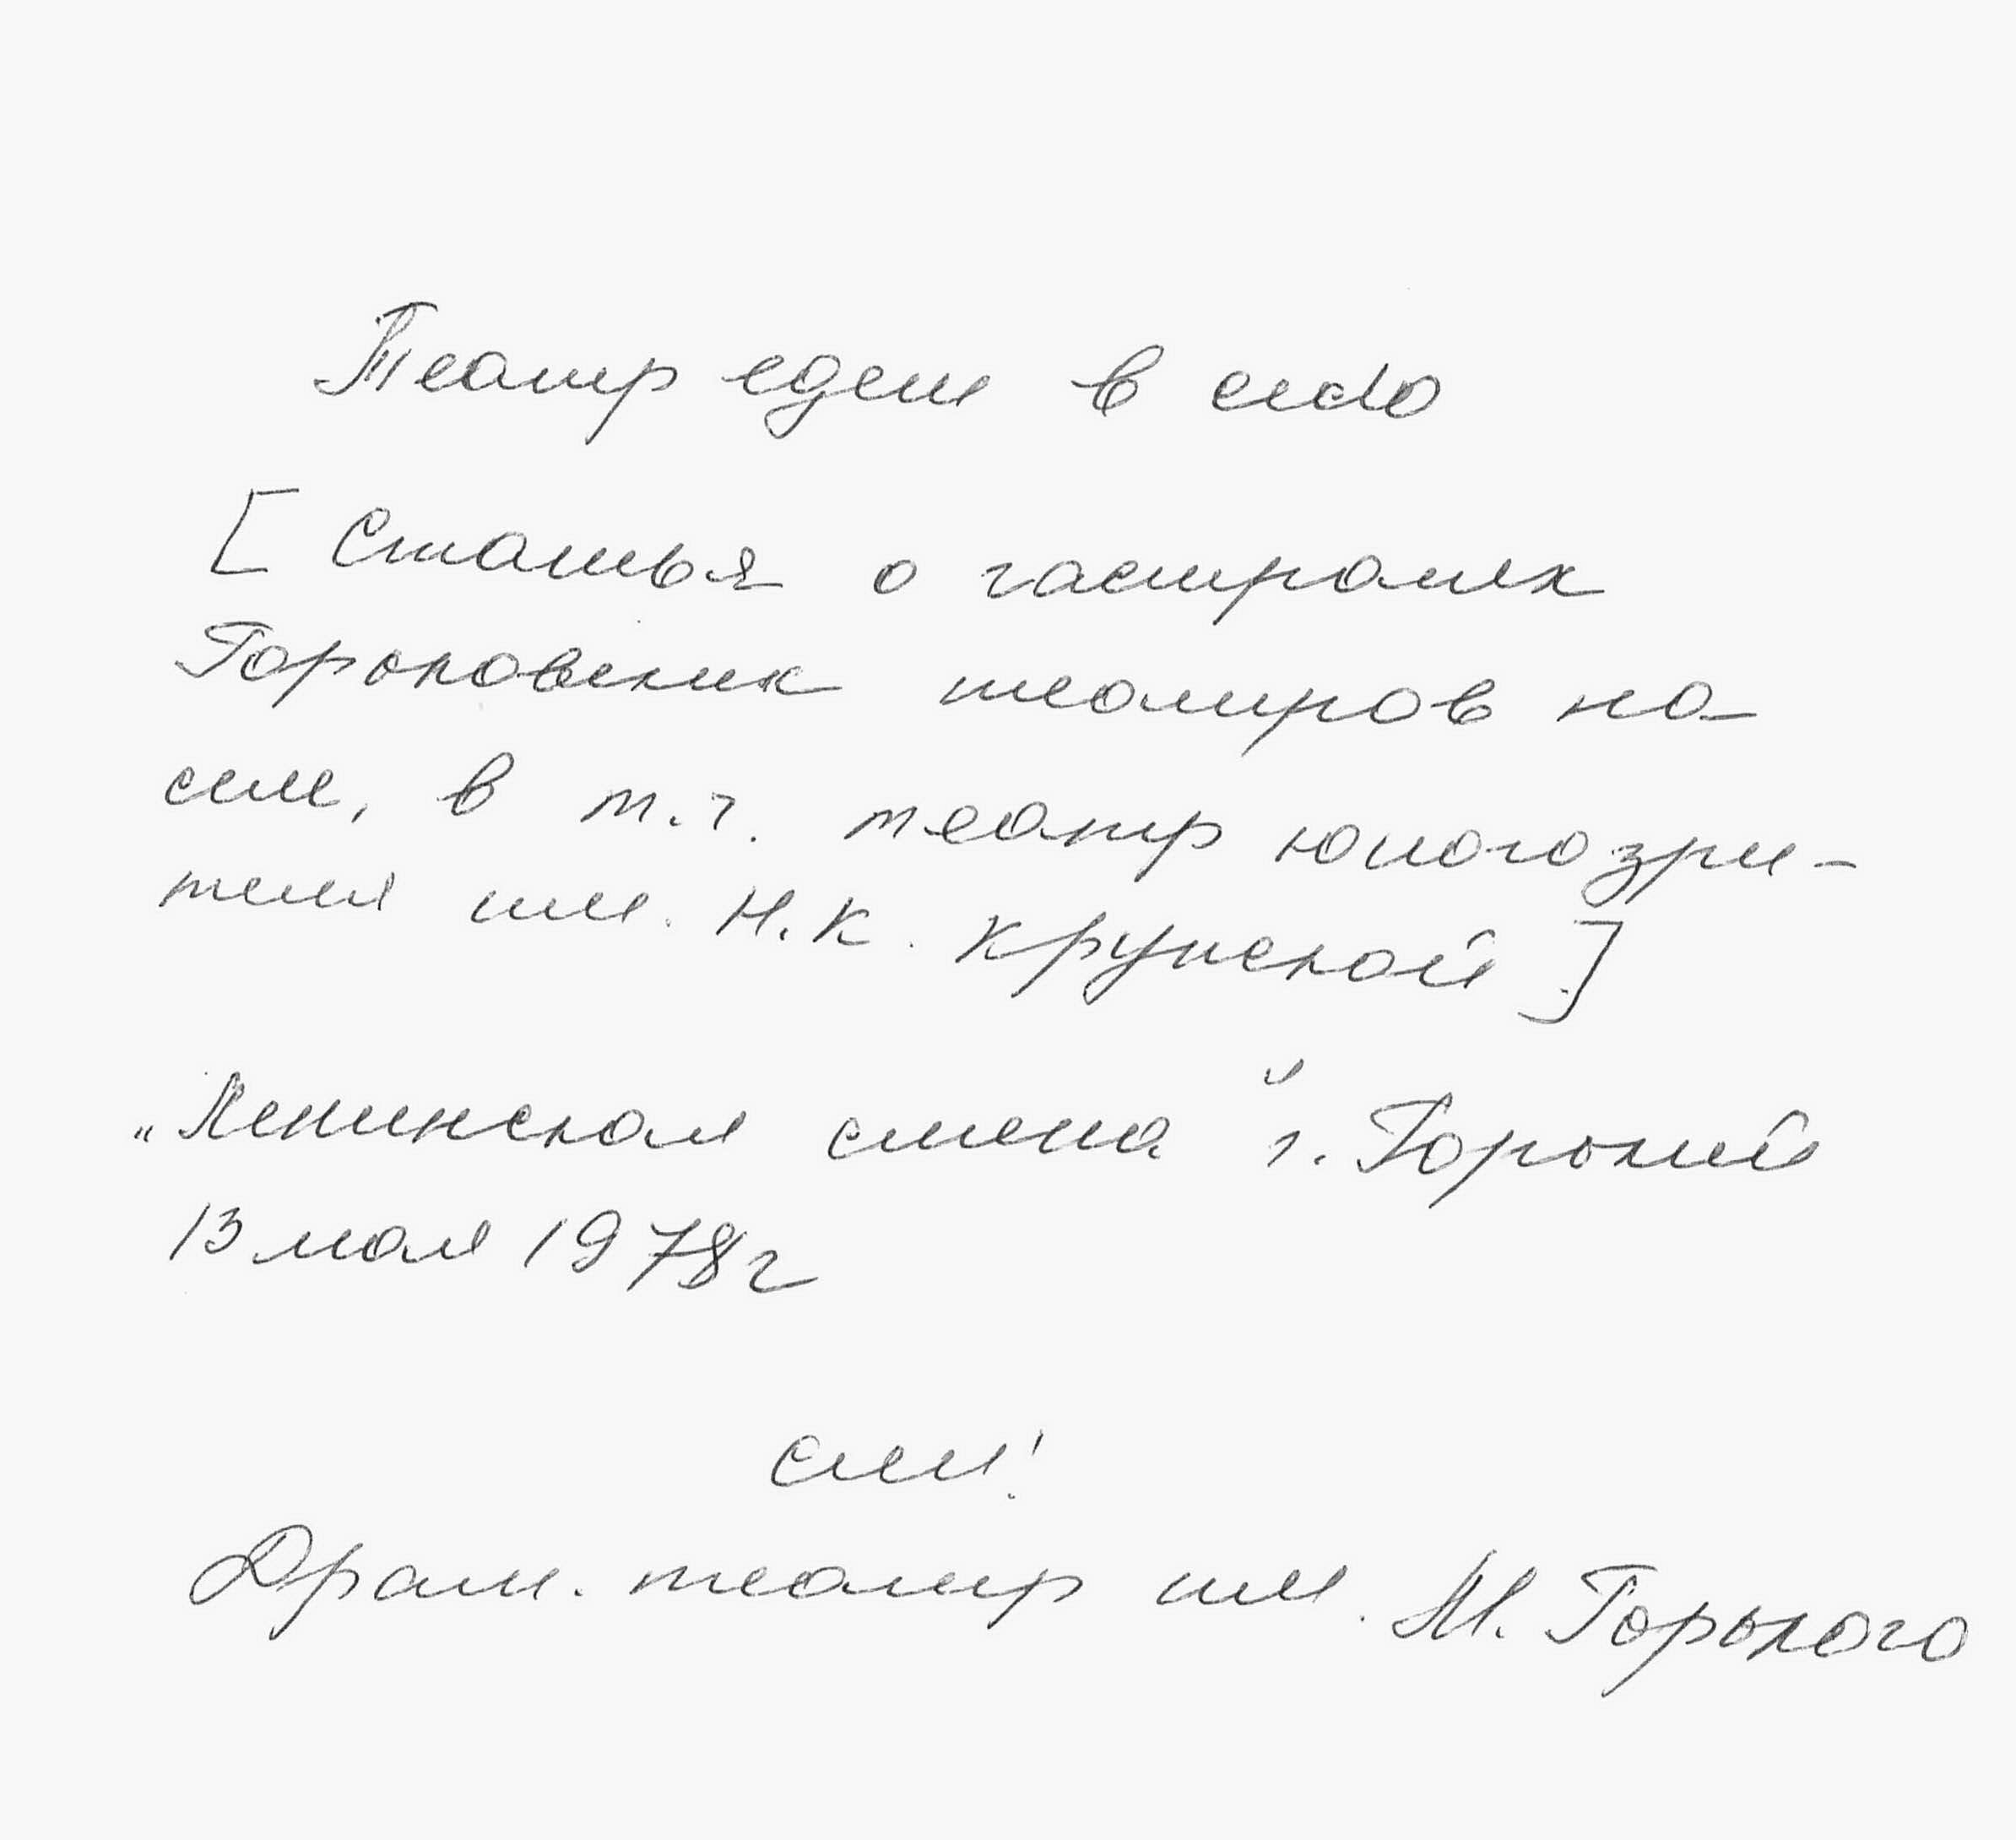 Театр едет в село
[Статья о гастролях
Горьковских театров на
селе, в т.ч. театр юного зри-
теля им. Н.К. Крупской]
„Ленинская смена" г. Горький
13 мая 1978г
см!
Драм. театр им. М. Горького